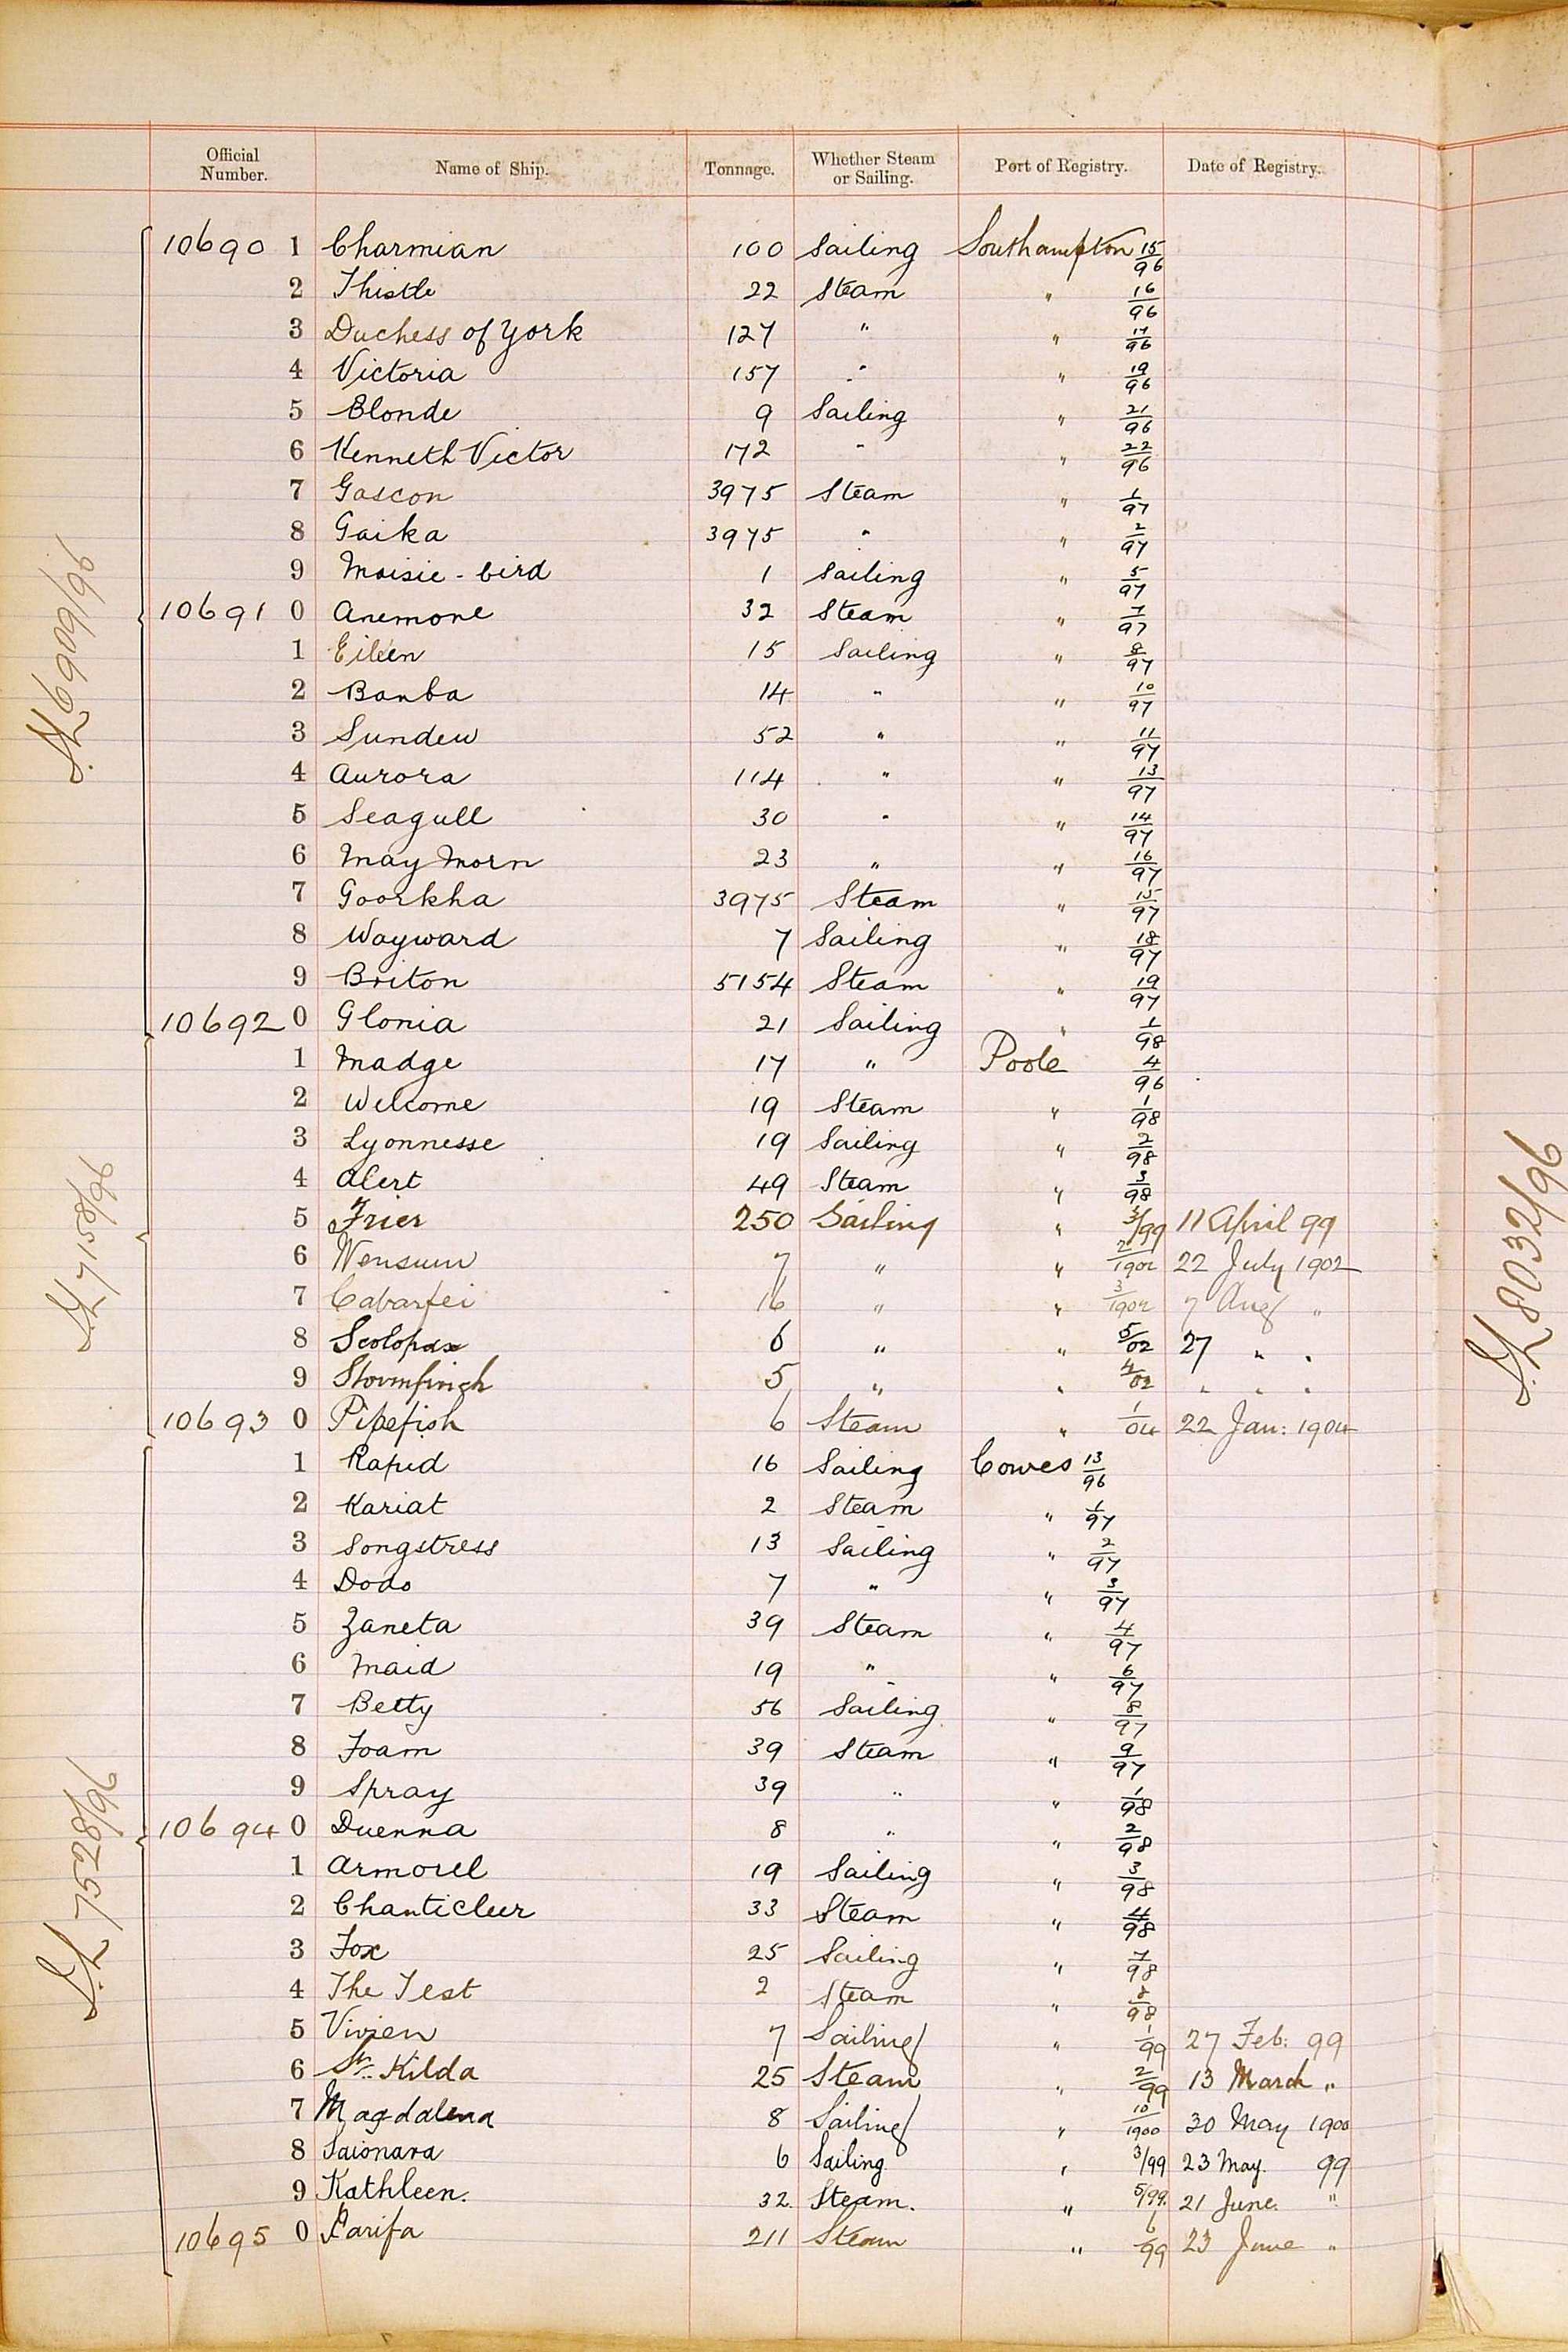 Official Number. Name of Ship. Tonnage. Whether Steam or Sailing. Port of Registry. Date of Registry.
10690 1 Charmian 100 Sailing Southampton 15/96
2 Thistle 22 Steam " 16/96
3 Duchess of York 127 " " 17/96
4 Victoria 157 " " 19/96
5 Blonde 9 Sailing " 21/96
6 Kenneth Victor 172 " " 22/96
7 Gascon 3975 Steam " 1/97
8 Gaika 3975 " " 2/97
9 Maisie-bird 1 Sailing " 5/97
10691 0 Anemone 32 Steam " 7/97
1 Eileen 15 Sailing " 8/97
2 Banba 14 " " 10/97
3 Sundew 52 " " 11/97
4 Aurora 114 " " 13/97
5 Seagull 30 " " 14/97
6 May Morn 23 " " 16/97
7 Goorkha 3975 Steam " 15/97
8 Wayward 7 Sailing " 18/97
9 Briton 5154 Steam " 19/97
10692 0 Gloria 21 Sailing " 1/98
1 Madge 17 " Poole 4/96
2 Welcome 19 Steam " 1/98
3 Lyonnesse 19 Sailing " 2/98
4 Alert 49 Steam " 3/98
5 Frier 250 Sailing " 3/99 11 April 99
6 Wensum 7 " " 2/1902 22 July 1902
7 16 " " 3/1902 7 Aug "
8 Scolopax 6 " " 5/02 27 " "
9 Stormfinch 5 " " 4/02 " " "
10693 0 Pipefish 6 Steam " 1/04 22 Jan: 1904
1 Rapid 16 Sailing Cowes 13/96
2 Kariat 2 Steam " 1/97
3 Songstress 13 Sailing " 2/97
4 Dodo 7 " " 3/97
5 Zaneta 39 Steam " 4/97
6 Maid 19 " " 6/97
7 Betty 56 Sailing " 8/97
8 Foam 39 Steam " 9/97
9 Spray 39 " " 1/98
10694 0 Duenna 8 " " 2/98
1 Armorel 19 Sailing " 3/98
2 Chanticleer 33 Steam " 4/98
3 Fox 25 Sailing " 7/98
4 The Test 2 Steam " 8/98
5 Vivien 7 Sailing " 1/99 27 Feb: 99
6 St. Kilda 25 Steam " 2/99 13 March "
7 Magdalena 8 Sailing " 10/1900 30 May 1900
8 Saionara 6 Sailing " 3/99 23 May. 99
9 Kathleen. 32. Steam. " 5/99. 21 June. "
10695 0 Xarifa 211 Steam " 6/99 23 June "
S.L 6909/96
S.L 7158/96
S.L 7528/96
S.L 8032/96